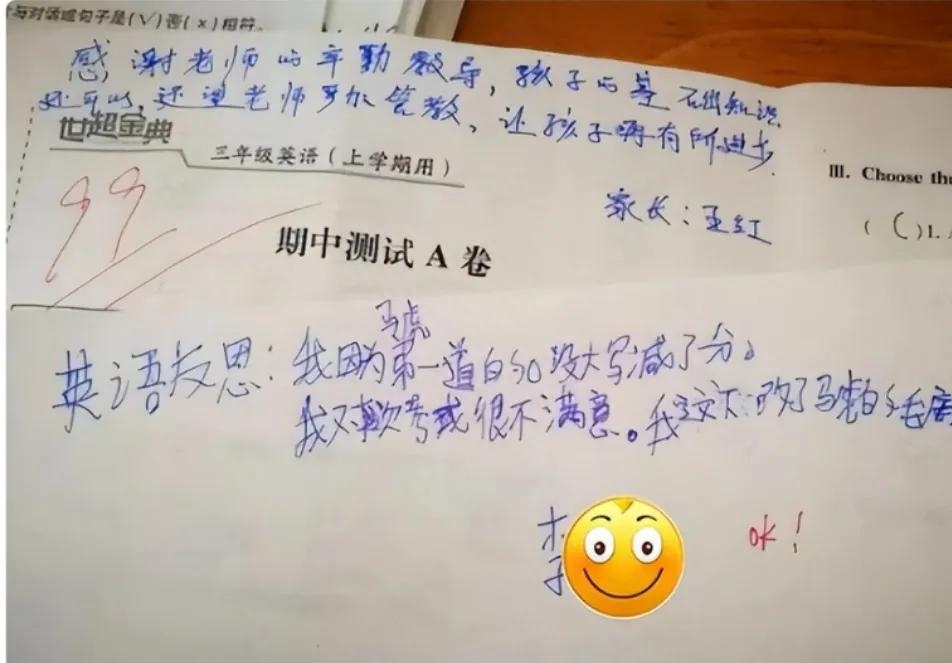 与对话或句子是(√)否(×)相符。
感谢老师的辛勤教导，孩子的基础知识
还可以，还望老师多加管教，让孩子再有所进步。
世超金典
三年级英语（上学期用）
家长：王红
99
期中测试 A 卷
III. Choose the
( C )1.
马虎
英语反思：我因为第一道的so没大写减了分。
我对这次考试很不满意。我这次下改了马虎的毛病
李
ok！